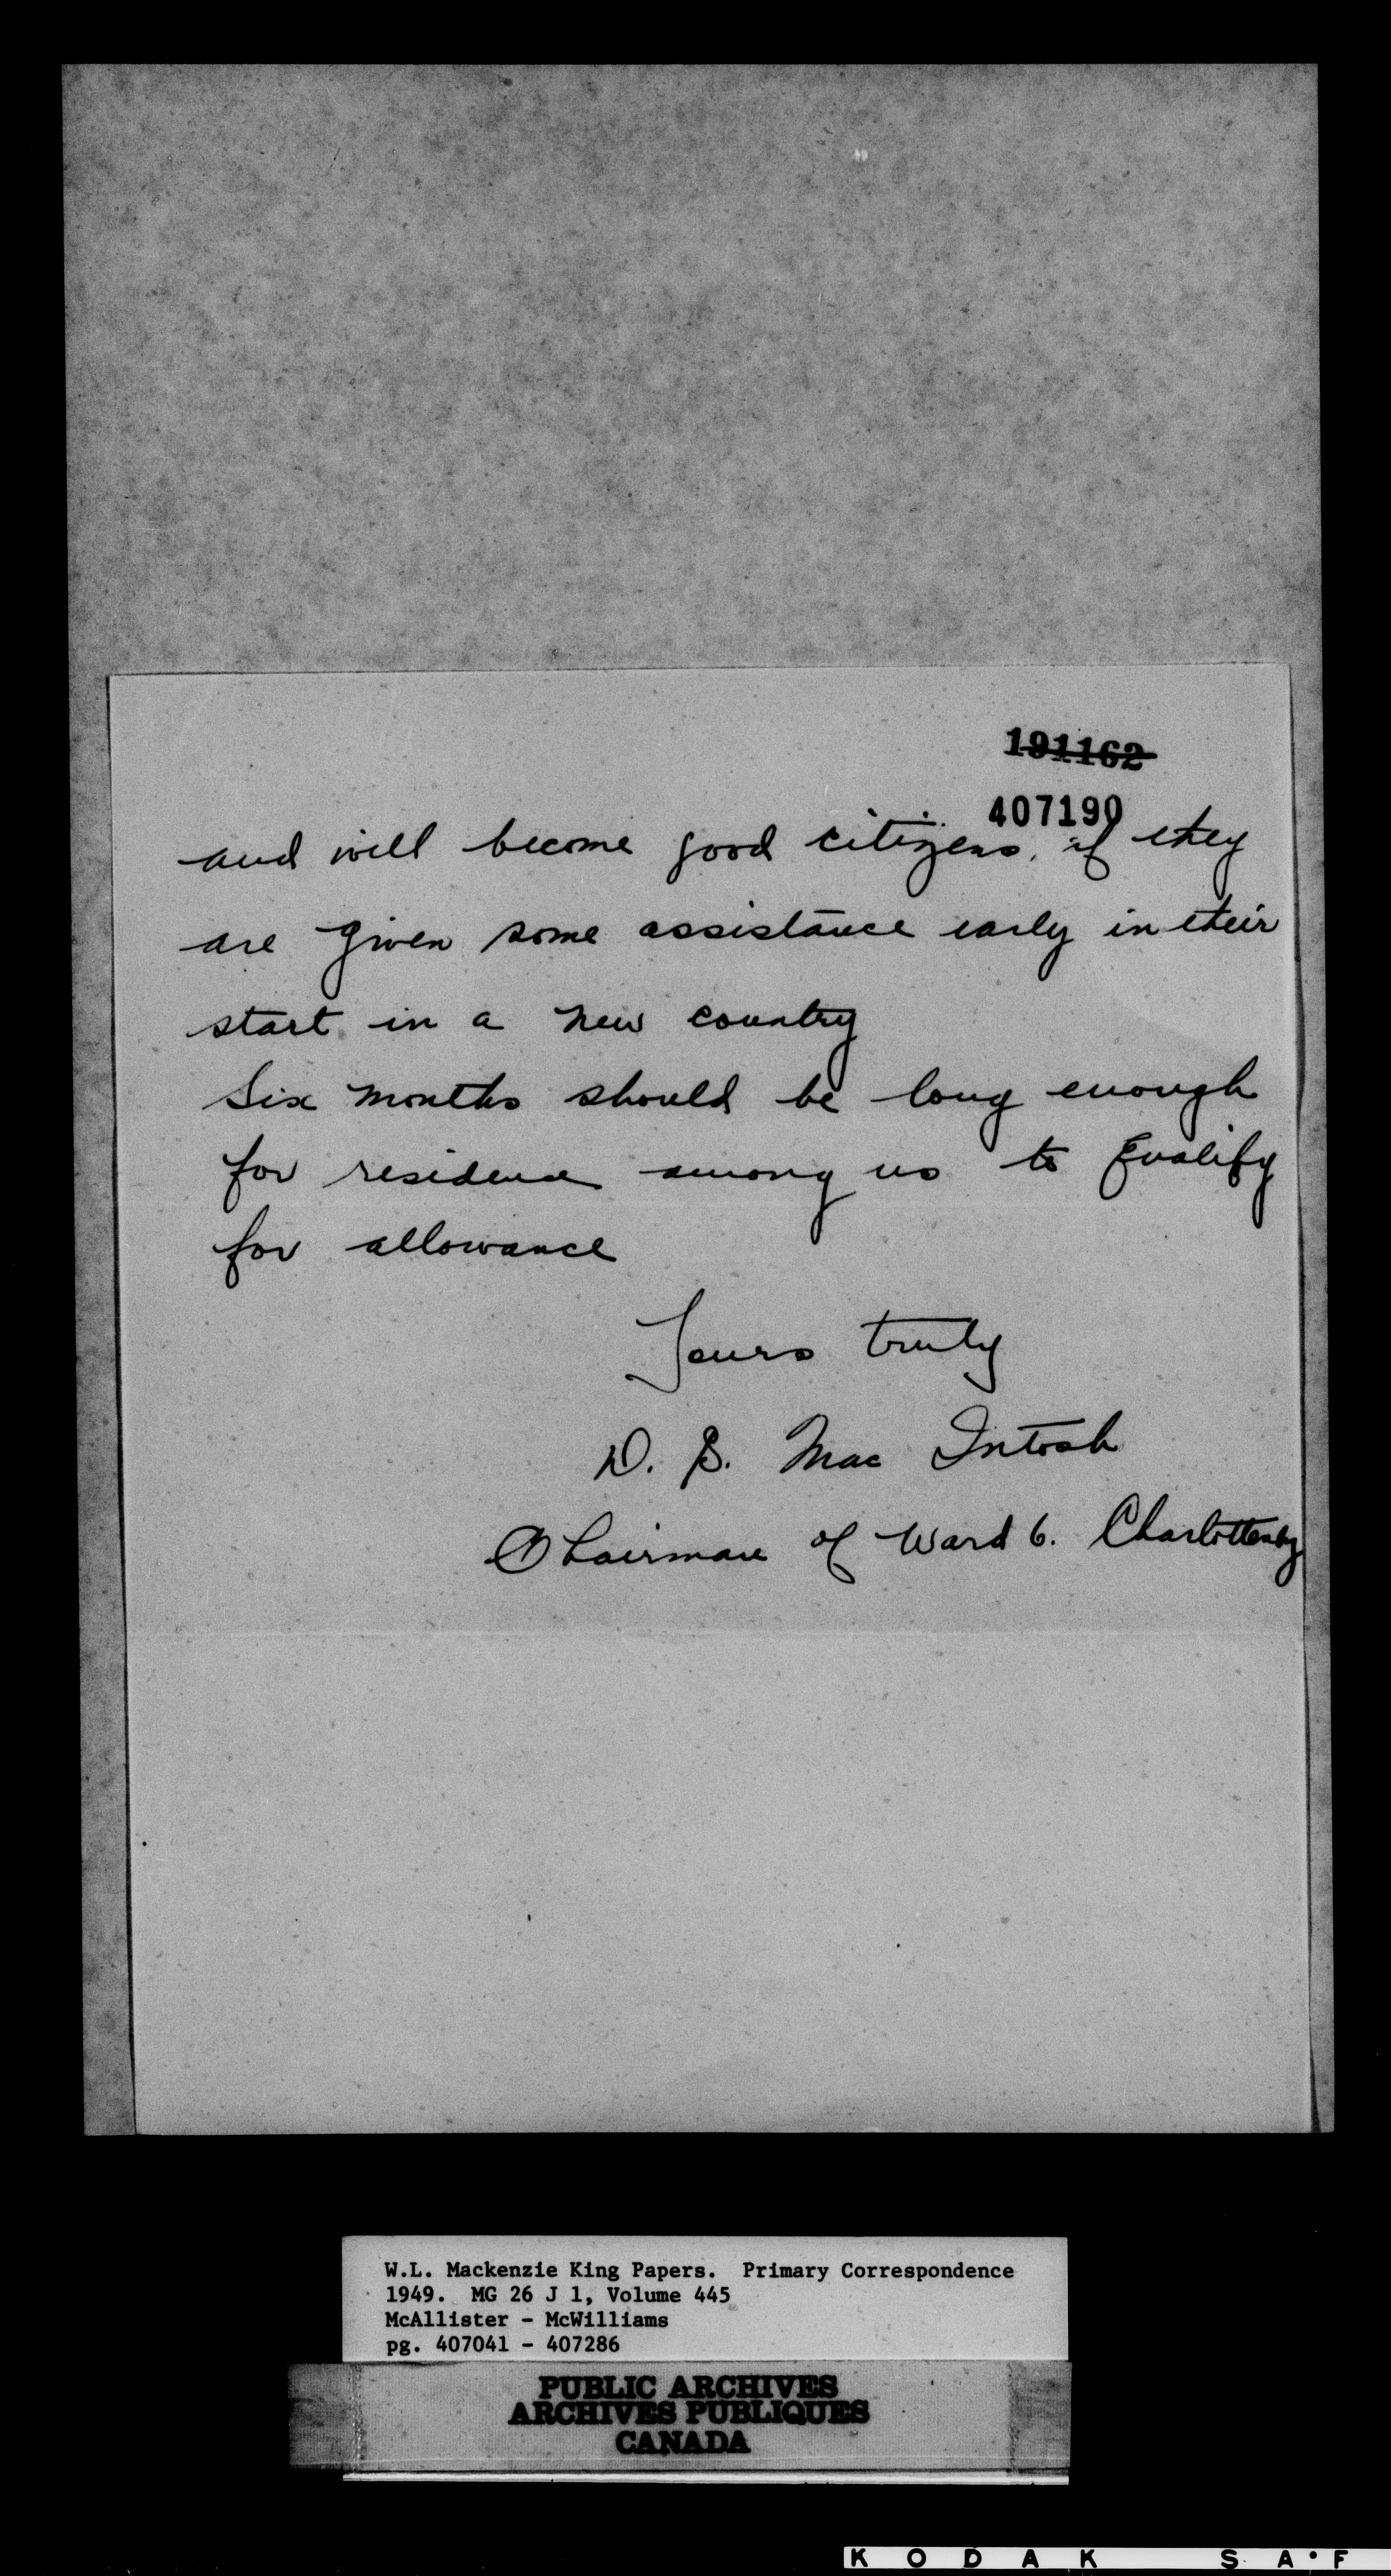 191162
407190
and will become good citizens, if they
are given some assistance early in their
start in a new country
Six months should be long enough
for residence among us to qualify
for allowance
Yours truly
D. B. Mac Intosh
Chairman of Ward 6. Charlottenbg
W.L. Mackenzie King Papers. Primary Correspondence
1949. MG 26 J 1, Volume 445
McAllister - McWilliams
pg. 407041 - 407286
PUBLIC ARCHIVES
ARCHIVES PUBLIQUES
CANADA
KODAK S.A.F